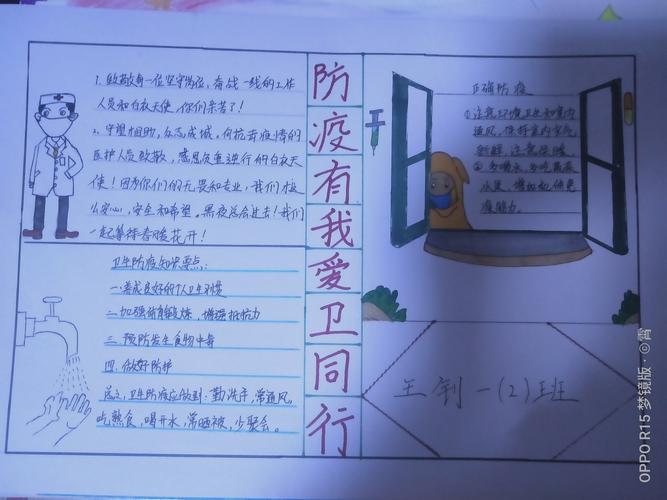 1. 致敬每一位坚守岗位,奋战一线的工作
人员和白衣天使,你们辛苦了!
2. 守望相助,众志成城,向抗击疫情的
医护人员致敬,感恩负重逆行的白衣天
使!因为你们的无畏和专业,我们才
么安心,安全和希望。黑夜总会过去!我们
一起等待春暖花开!
卫生防疫知识要点:
一.养成良好的个人卫生习惯
二.加强体育锻炼,增强抵抗力
三.预防发生食物中毒
四.做好防护
总之,卫生防疫应做到:勤洗手,常通风,
吃熟食,喝开水,常晒被,少聚会。
防
疫
有
我
爱
卫
同
行
正确防疫
①注意环境卫生和室内
通风,保持室内空气
新鲜,注意保暖
②多喝水,多吃蔬菜
水果,增加机体免
疫能力。
王钊一(2)班
OPPO R15 梦镜版·©霄